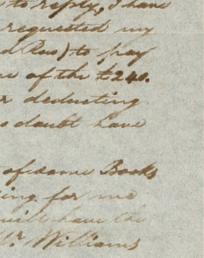 to reply, I have
requested my
to pay
of the £240.
deducting
doubt have
of some Books
for me
will have the
Mr. Williams